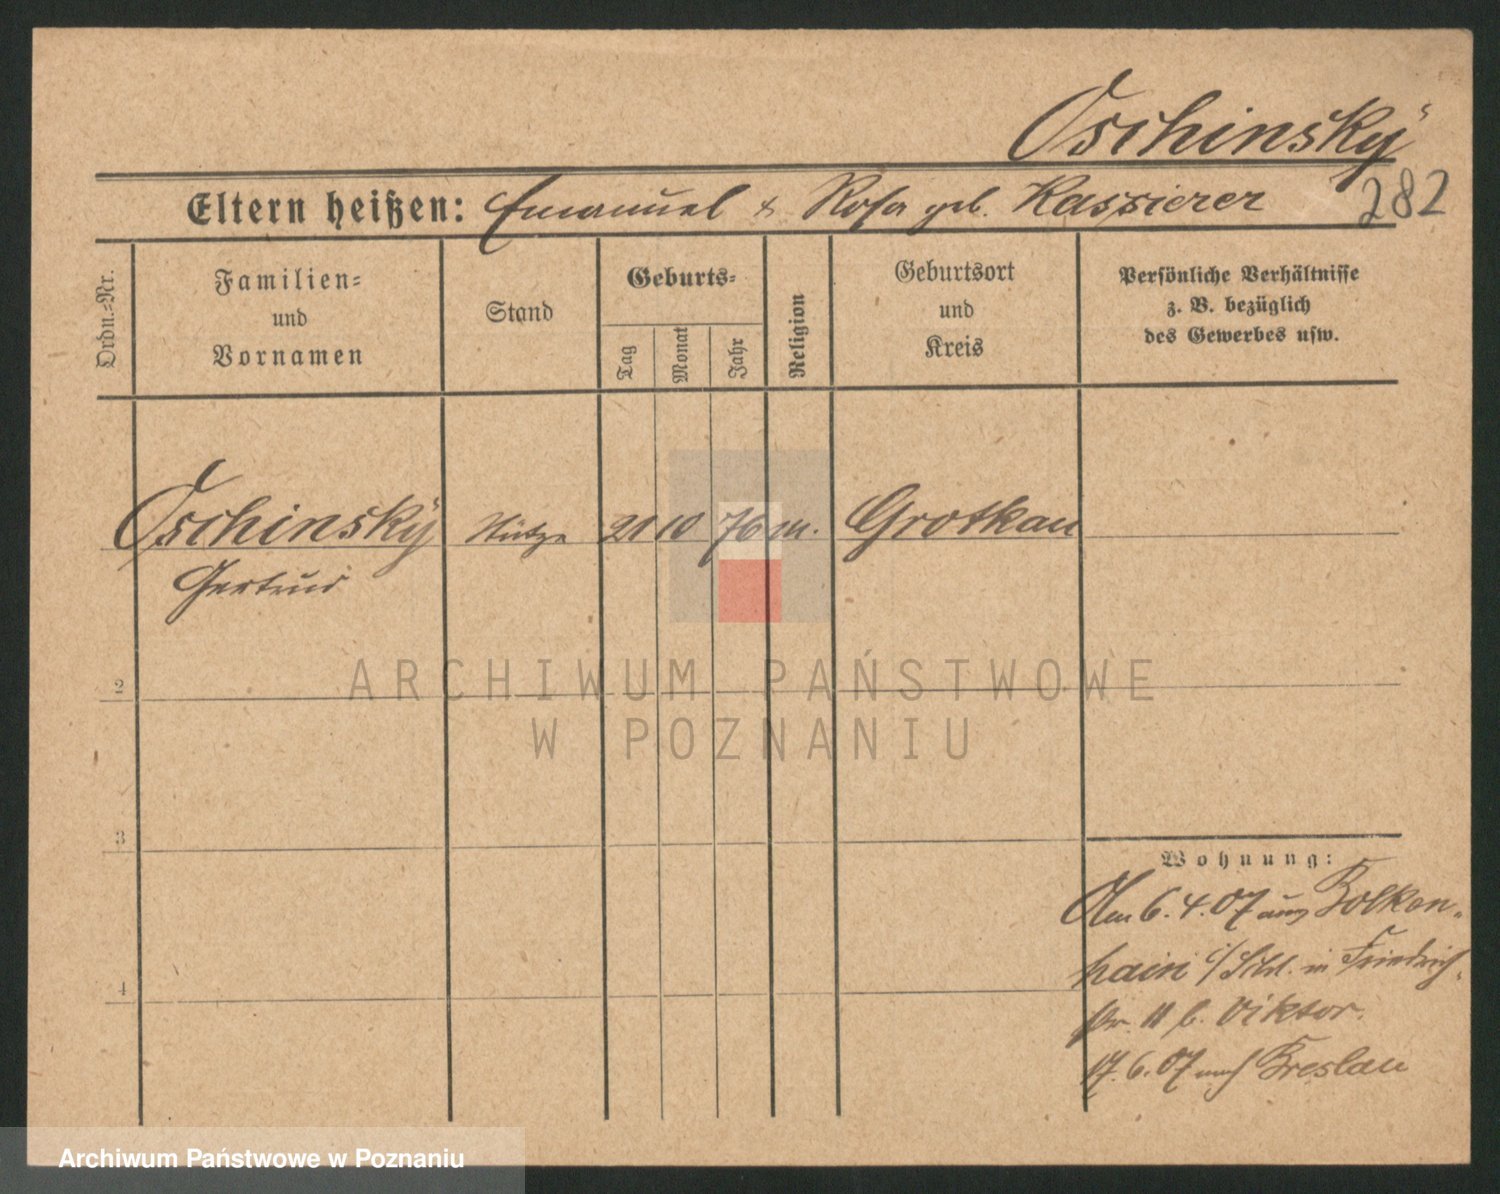 Oschinsky
Eltern heißen: Emanuel & Rosa geb. Kassierer
282
Ordn.-Nr.
Familien-
und
Vornamen
Stand
Geburts-
Tag
Monat
Jahr
Religion
Geburtsort
und
Kreis
Persönliche Verhältnisse
z. B. bezüglich
des Gewerbes usw.
Oschinsky Stütze 21 10 76 m. Grotkau
Gertrud
2
3
4
Wohnung:
Am 6.4.07 aus Bolken-
hain i/Schl. in Friedrich-
str. 11 b. Viktor.
17.6.07 nach Breslau
ARCHIWUM PAŃSTWOWE
W POZNANIU
Archiwum Państwowe w Poznaniu